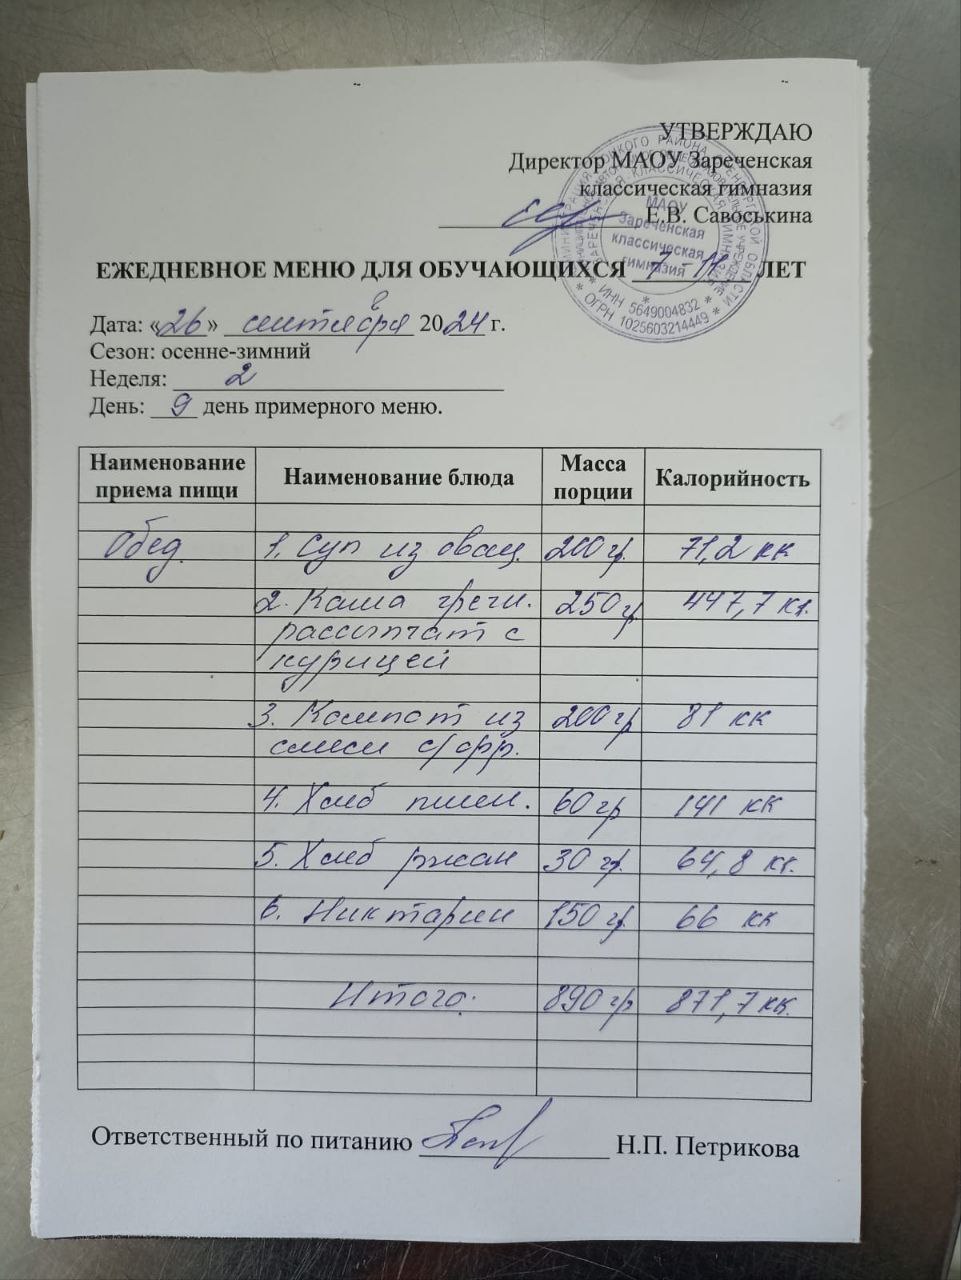 УТВЕРЖДАЮ
Директор МАОУ Зареченская
классическая гимназия
Е.В. Савоськина
МАОУ
Зареченская
классическая
гимназия
* ИНН 5649004832 *
* ОГРН 1025603214449 *
ЕЖЕДНЕВНОЕ МЕНЮ ДЛЯ ОБУЧАЮЩИХСЯ 7-11 ЛЕТ
Дата: «26» сентября 2024 г.
Сезон: осенне-зимний
Неделя: 2
День: 9 день примерного меню.
Наименование приема пищи Наименование блюда Масса порции Калорийность
Обед 1. Суп из овощ. 200 гр. 71,2 кк
2. Каша гречн. 250 гр 447,7 кк.
рассыпчат с
курицей
3. Компот из 200 гр 81 кк
смеси с/фр.
4. Хлеб пшен. 60 гр 141 кк
5. Хлеб ржан 30 гр. 64,8 кк.
6. Никтарин 150 гр. 66 кк
Итого: 890 гр 871,7 кк.
Ответственный по питанию Н.П. Петрикова